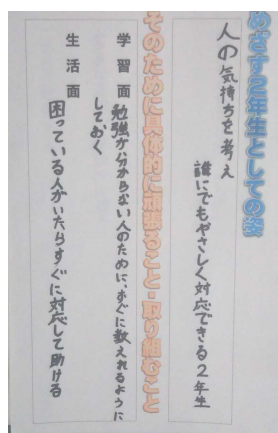 めざす2年生としての姿
人の気持ちを考え
誰にでもやさしく対応できる2年生
そのために具体的に頑張ること・取り組むこと
学習面
勉強が分からない人のために、すぐに教えれるように
しておく
生活面
困っている人がいたらすぐに対応して助ける